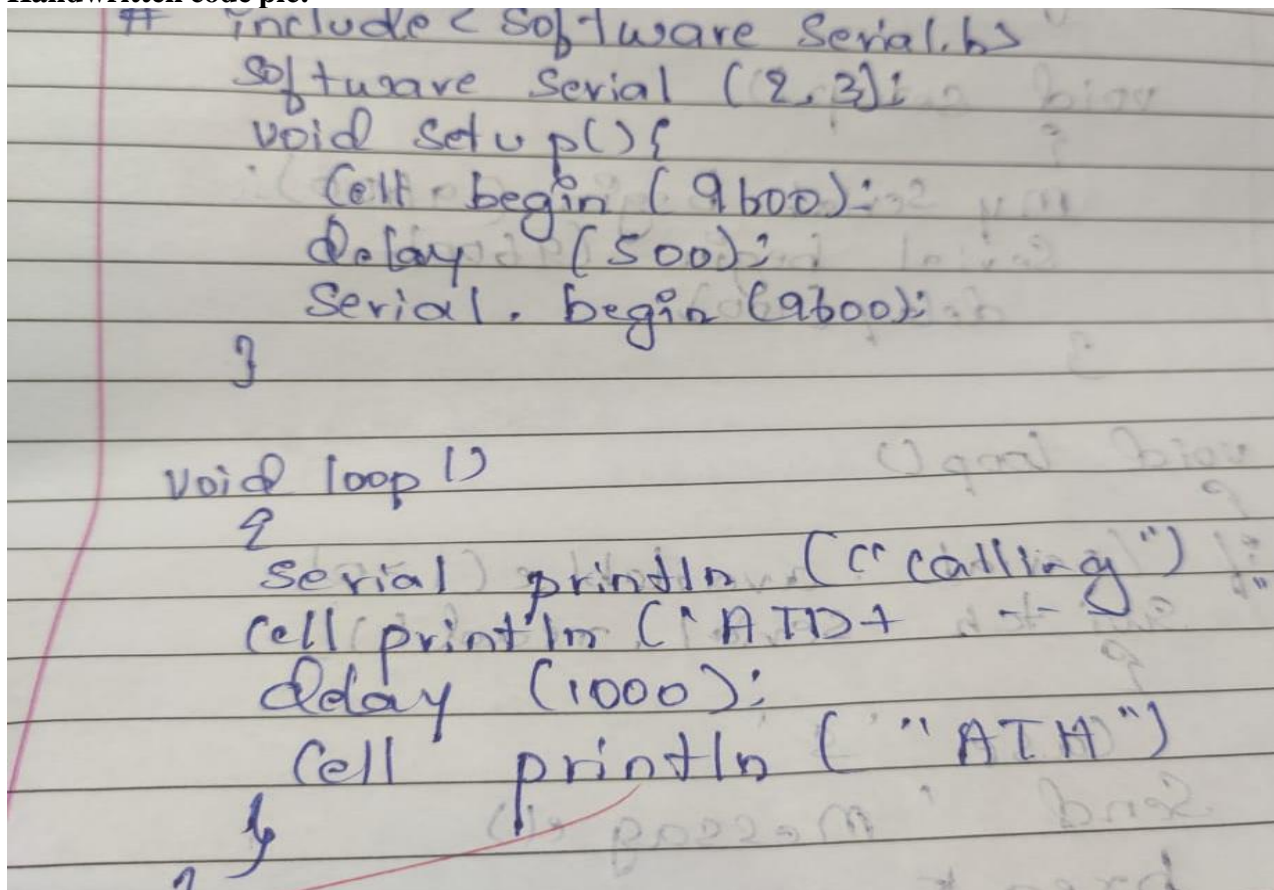 Handwritten code pic:
# include < Software Serial.h>
Software Serial (2,3);
void setup(){
Cell. begin (9600);
delay (500);
Serial. begin (9600);
}
void loop ()
{
serial println ("calling")
cell println ("ATD+
delay (1000);
Cell println ( "ATH")
}